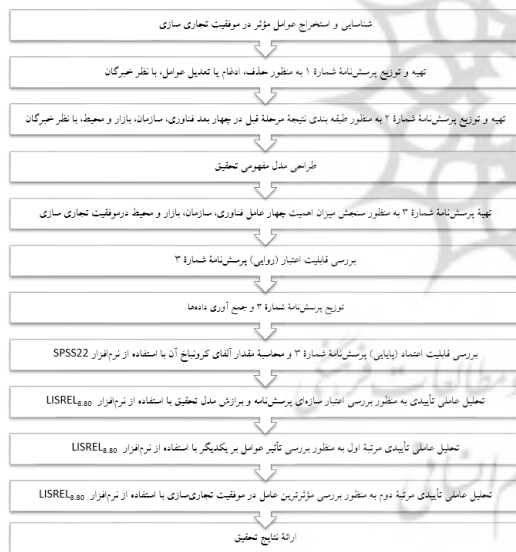 شناسایی و استخراج عوامل مؤثر در موفقیت تجاری سازی
تهیه و توزیع پرسش‌نامۀ شمارۀ ۱ به منظور حذف، ادغام یا تعدیل عوامل، با نظر خبرگان
تهیه و توزیع پرسش‌نامۀ شمارۀ ۲ به منظور طبقه بندی نتیجۀ مرحلۀ قبل در چهار بعد فناوری، سازمان، بازار و محیط، با نظر خبرگان
طراحی مدل مفهومی تحقیق
تهیۀ پرسش‌نامۀ شمارۀ ۳ به منظور سنجش میزان اهمیت چهار عامل فناوری، سازمان، بازار و محیط درموفقیت تجاری سازی
بررسی قابلیت اعتبار (روایی) پرسش‌نامۀ شمارۀ ۳
توزیع پرسش‌نامۀ شمارۀ ۳ و جمع آوری داده‌ها
بررسی قابلیت اعتماد (پایایی) پرسش‌نامۀ شمارۀ ۳ و محاسبۀ مقدار آلفای کرونباخ آن با استفاده از نرم‌افزار SPSS22
تحلیل عاملی تأییدی به منظور بررسی اعتبار سازه‌ای پرسش‌نامه و برازش مدل تحقیق با استفاده از نرم‌افزار LISREL8.80
تحلیل عاملی تأییدی مرتبۀ اول به منظور بررسی تأثیر عوامل بر یکدیگر با استفاده از نرم‌افزار LISREL8.80
تحلیل عاملی تأییدی مرتبۀ دوم به منظور بررسی مؤثرترین عامل در موفقیت تجاری‌سازی با استفاده از نرم‌افزار LISREL8.80
ارائۀ نتایج تحقیق